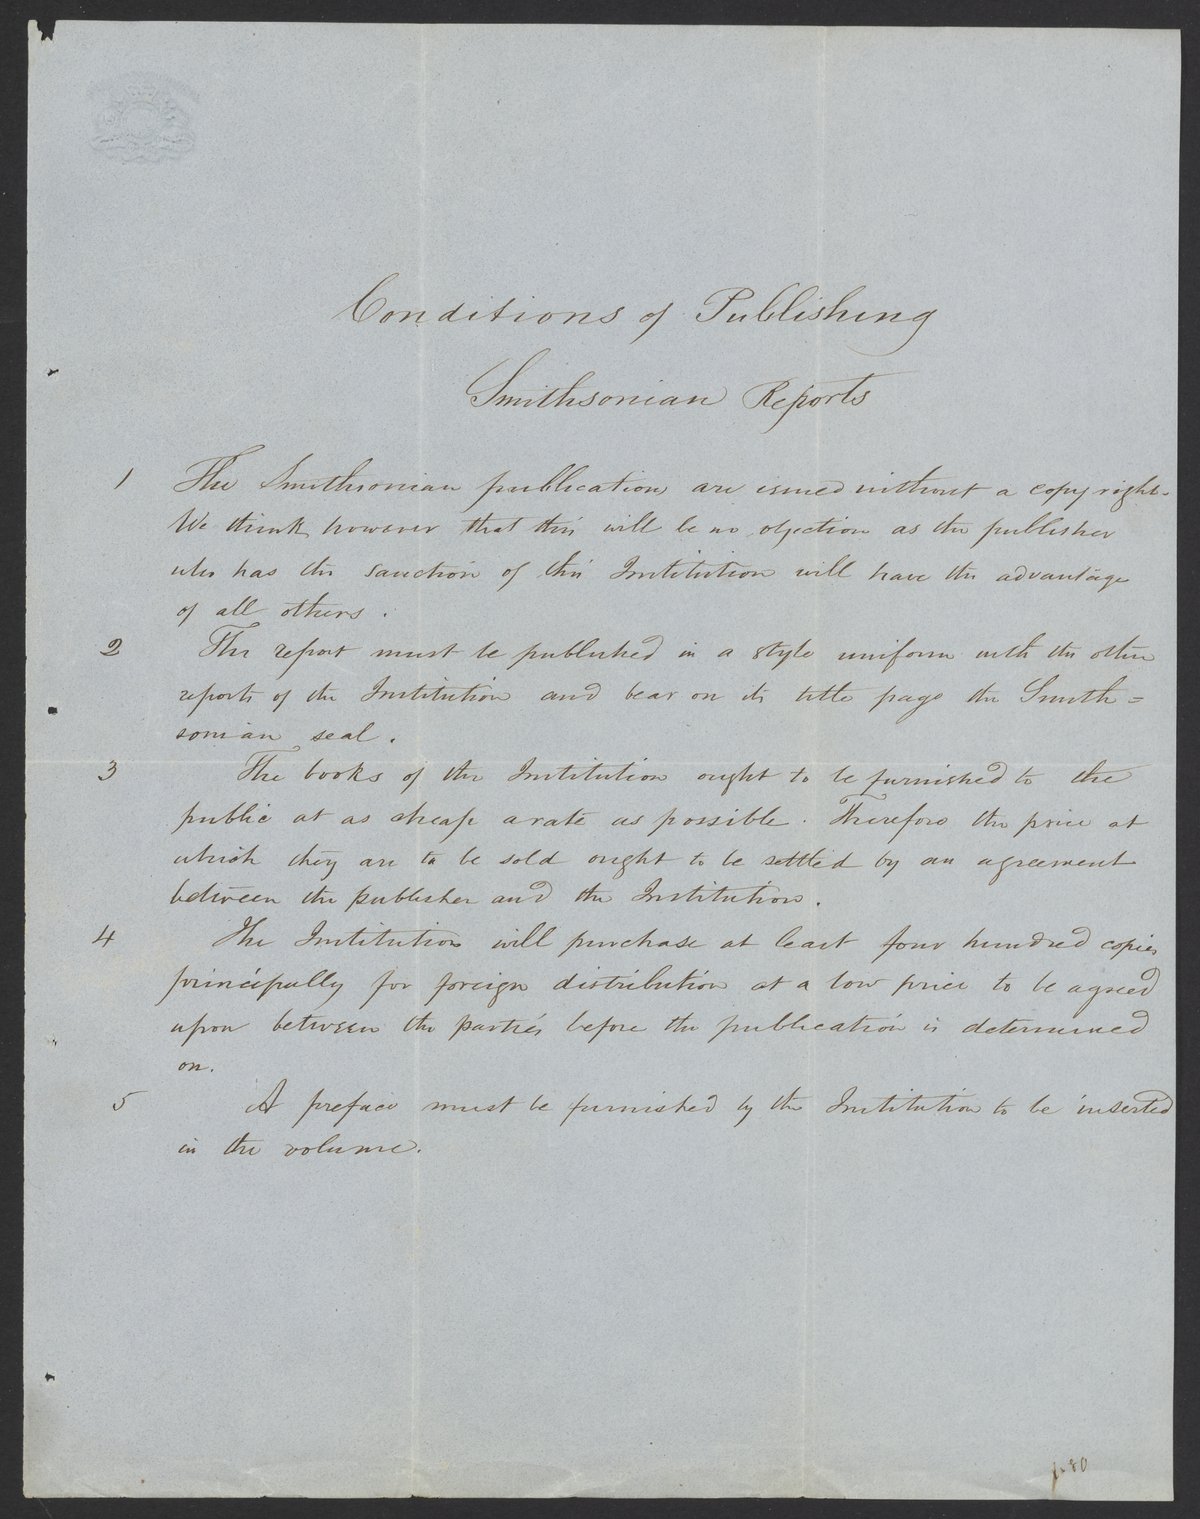 Conditions of Publishing
Smithsonian Reports
1 The Smithsonian publications are issued without a copy right-
We think however that this will be no objection as the publisher
who has the sanction of this Institution will have the advantage
of all others.
2 The report must be published in a style uniform with the other
reports of the Institution and bear on its title page the Smith=
sonian seal.
3 The books of the Institution ought to be furnished to the
public at as cheap a rate as possible. Therefore the price at
which they are to be sold ought to be settled by an agreement
between the publisher and the Institution.
4 The Institution will purchase at least four hundred copies
principally for foreign distribution at a low price to be agreed
upon between the parties before the publication is determined
on.
5 A preface must be furnished by the Institution to be inserted
in the volume.